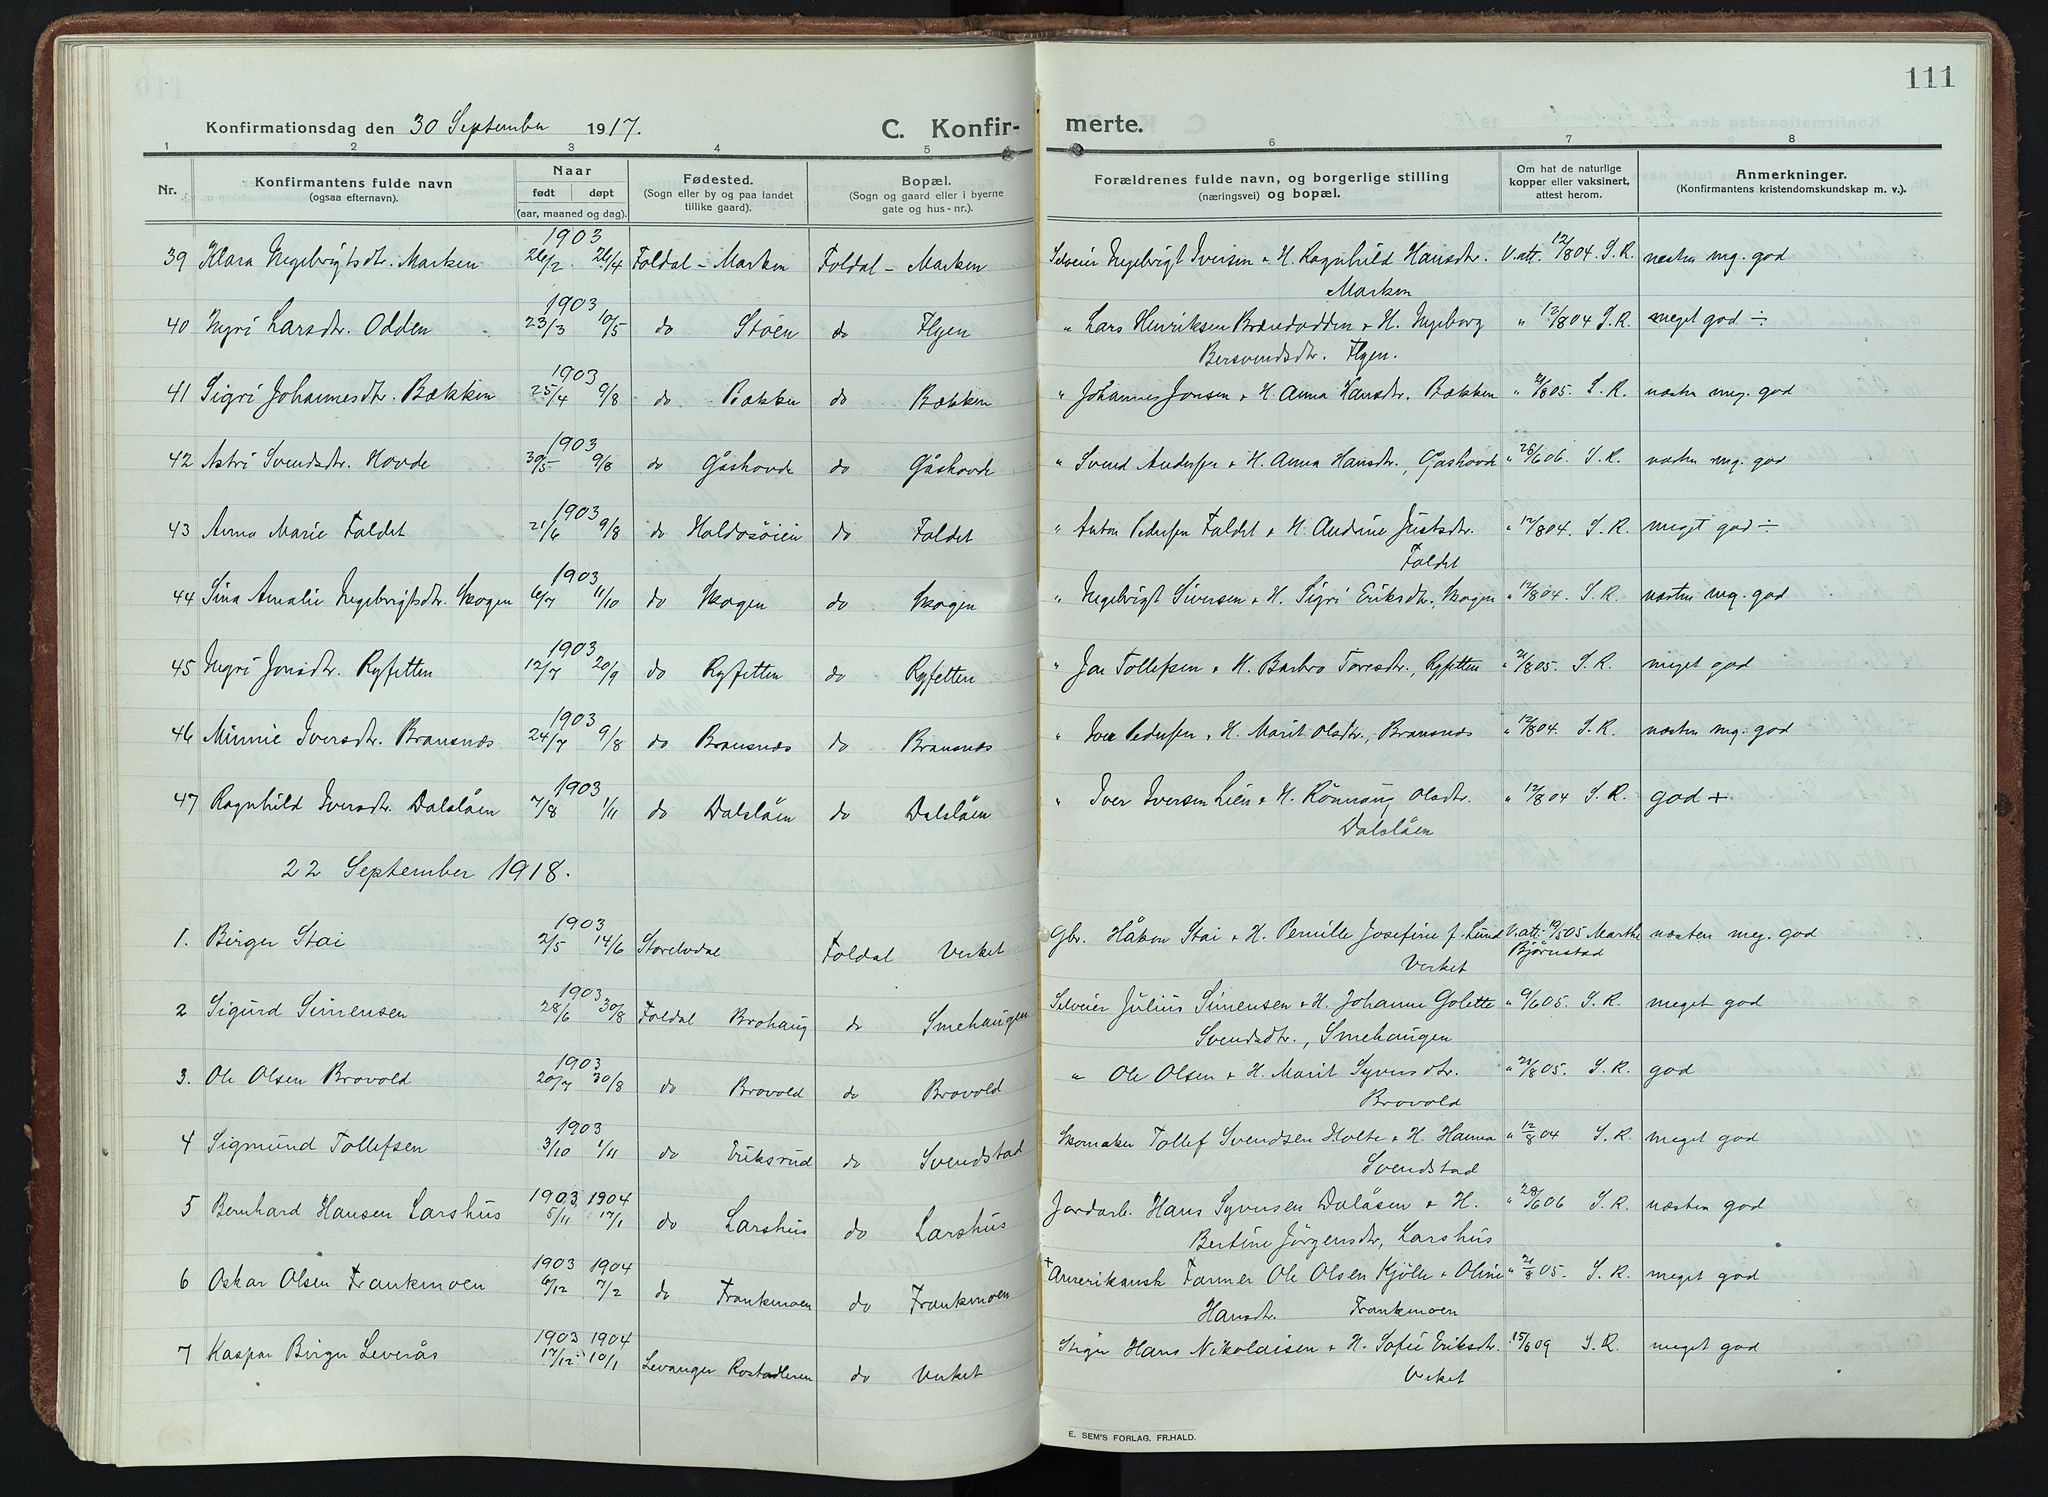 111
Konfirmationsdag den 30 September 1917. C. Konfir- merte.
1 2 3 4 5 6 7 8
Nr. Konfirmantens fulde navn (ogsaa efternavn). Naar født døpt (aar, maaned og dag). Fødested. (Sogn eller by og paa landet tillike gaard). Bopæl. (Sogn og gaard eller i byerne gate og hus-nr.). Forældrenes fulde navn, og borgerlige stilling (næringsvei) og bopæl. Om hat de naturlige kopper eller vaksinert, attest herom. Anmerkninger. (Konfirmantens kristendomskundskap m. v.).
1903
39 Klara Ingebrigtsdtr. Marken 26/2 26/4 Foldal - Marken Foldal - Marken Selveier Ingebrigt Iversen & H. Ragnhild Hansdtr. V. att. 12/8 04. S. R. næsten mg. god
Marken
1903
40 Ingri Larsdtr. Odden 23/3 10/5 do Støen do Flyen " Lars Henriksen Brændodden & H. Ingeborg " 12/8 04 S. R. meget god ÷
Bersvendsdtr. Flyen.
1903
41 Sigri Johannesdtr. Bækken 25/4 9/8 do Bækken do Bækken " Johannes Jonsen & H. Anna Hansdtr. Bækken " 21/8 05. S. R. næsten meg. god
1903
42 Astri Svendsdtr. Hovde 30/5 9/8 do Gåshovde do Gåshovde " Svend Andersen & H. Anna Hansdtr., Gåshovde " 28/6 06. S. R. næsten mg. god
1903
43 Anna Marie Foldet 21/6 9/8 do Haldosøien do Foldet " Anton Pedersen Foldet & H. Andrine Justsdtr. " 12/8 04. S. R. meget god ÷
Foldet
1903
44 Sina Amalie Ingebrigtsdtr. Skogen 6/7 11/10 do Skogen do Skogen " Ingebrigt Siversen & H. Sigri Eriksdtr., Skogen " 12/8 04. S. R. næsten mg. god
1903
45 Ingri Jonsdtr. Ryfetten 12/7 20/9 do Ryfetten do Ryfetten " Jon Tollefsen & H. Barbro Toresdtr., Ryfetten " 21/8 05. S. R. meget god
1903
46 Minnie Iversdtr. Bransnæs 24/7 9/8 do Bransnæs do Bransnæs " Iver Pedersen & H. Marit Olsdtr., Bransnæs " 12/8 04. S. R. næsten mg. god
1903
47 Ragnhild Iversdtr. Dalslåen 7/8 1/11 do Dalslåen do Dalslåen " Iver Iversen Lien & H. Rönnaug Olsdtr. " 12/8 04 S. R. god +
Dalslåen
22 September 1918.
1903
1. Birger Stai 2/5 14/6 Storelvdal Foldal Verket Gbr. Håkon Stai & H. Pernille Josefine f. Lund V. att. 19/5 05 Marthe næsten meg. god
Verket Bjørnstad
1903
2 Sigurd Simensen 28/6 30/8 Foldal Brohaug do Smehaugen Selveier Julius Simensen & H. Johanne Golette " 9/6 05. S. R. meget god
Svendsdtr., Smehaugen
1903
3. Ole Olsen Brovold 20/7 30/8 do Brovold do Brovold " Ole Olsen & H. Marit Syversdtr. " 21/8 05. S. R. god
Brovold
1903
4 Sigmund Tollefsen 3/10 1/11 do Eriksrud do Svendstad Skomaker Tollef Svendsen Holte & H. Hanna " 12/8 04 S. R. meget god
Svendstad
1903 1904
5 Bernhard Hansen Larshus 5/11 17/1 do Larshus do Larshus Jordarb. Hans Syversen Dalåsen & H. " 28/6 06 S. R. næsten god
Bertine Jörgensdtr, Larshus
1903 1904
6 Oskar Olsen Frankmoen 6/12 7/2 do Frankmoen do Frankmoen † Amerikansk Farmer Ole Olsen Kjölle & Oline " 21/8 05. S. R. meget god
Hansdtr. Frankmoen
1903 1904
7 Kaspar Birger Leverås 17/12 10/1 Levanger Rostadleren do Verket Stiger Hans Nikolaisen & H. Sofie Eriksdtr. 15/6 09 S. R. meget god
Verket
E. SEM'S FORLAG, FR.HALD.